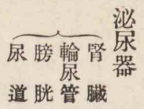 泌尿器
腎臓
輪尿管
膀胱
尿道